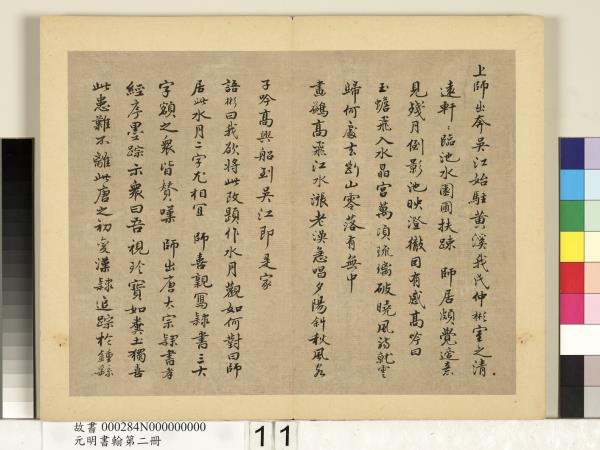 上師出奔吳江始駐黃溪我氏仲彬室之清
遠軒:臨池水園圃扶踈 師居頗覺適意
見殘月倒影池映澄徹因有感高吟曰
玉蟾飛入水晶宮萬頃琉璃破曉風詩就雲
歸何處去斷山零落有無中
畫鷁高飛江水漲老漁急唱夕陽斜秋風名
子吟高興船到吳江即是家
語彬曰我欲將此改題作水月觀如何對曰師
居此水月二字尤相宜 師喜親寫隸書三大
字額之眾皆贊嘆 師出唐太宗隸書孝
經序墨踪示眾曰吾視珍寶如糞土獨喜
此患難不離此唐之初變漢隸追踪於鍾繇
故書 000284N000000000
元明書翰第二冊
11